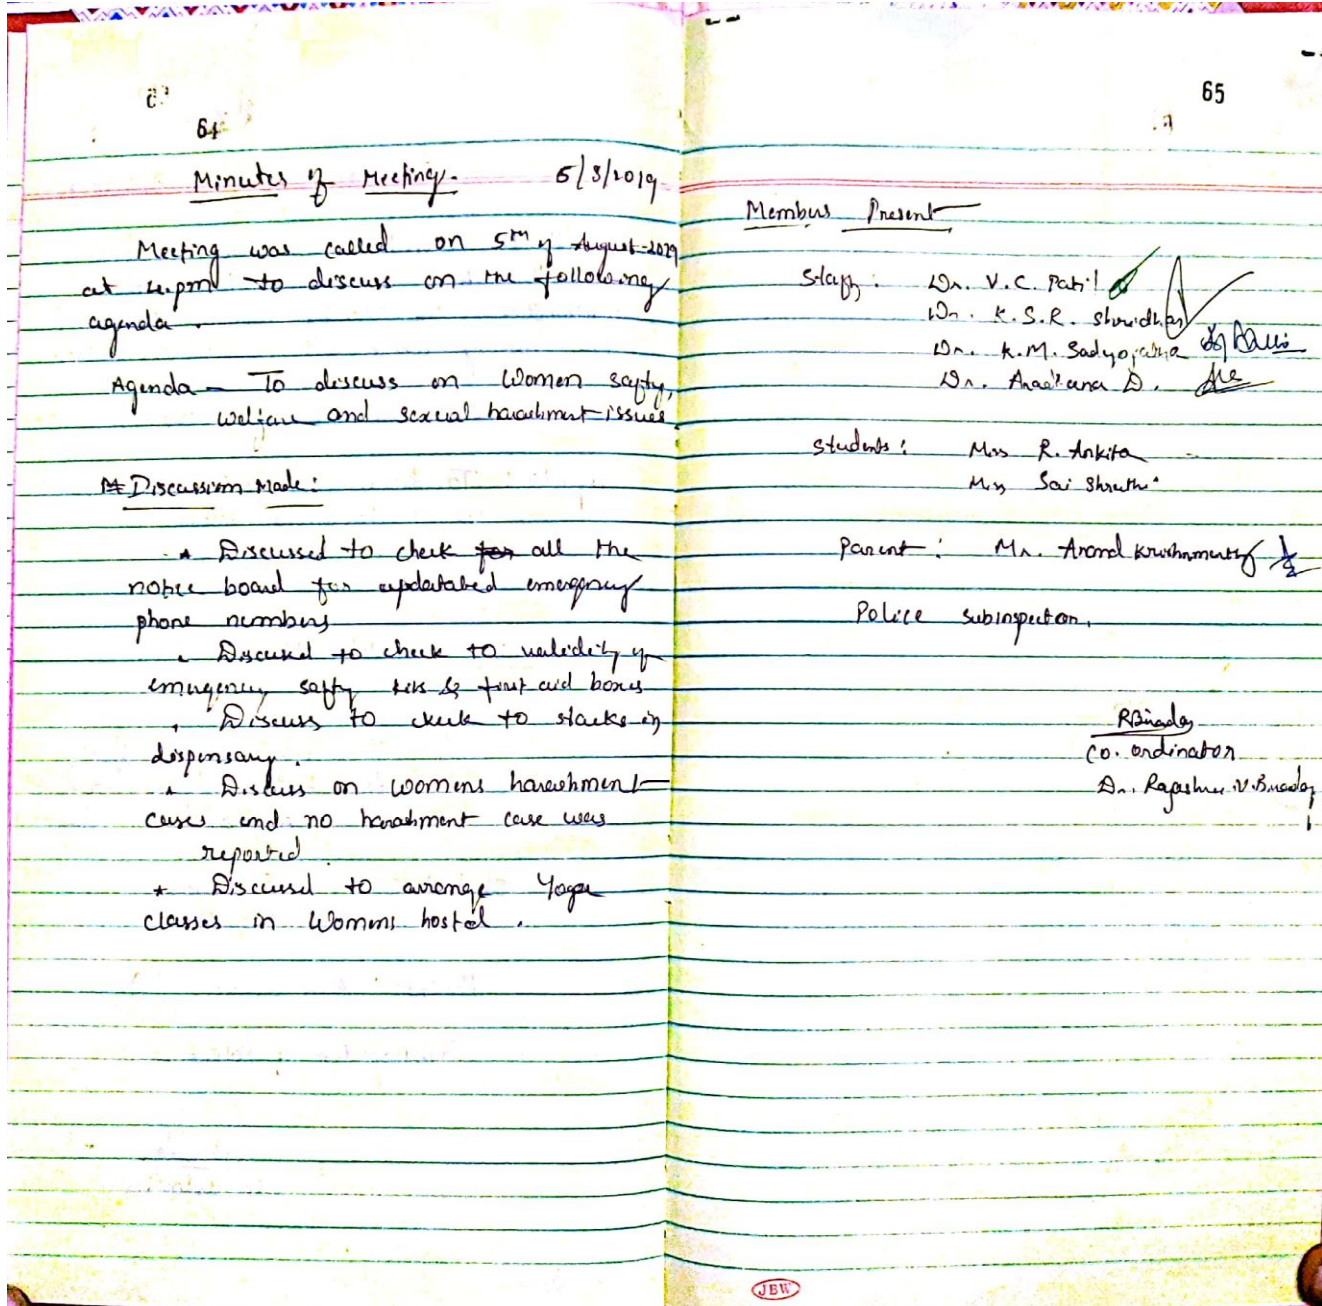 64
Minutes of Meeting. 5/8/2019
Meeting was called on 5th of August-2019
at 4.pm to discuss on the following
agenda.
Agenda - To discuss on Women safty,
welfare and sexual harashment issues.
Discussion Made:
* Discussed to check for all the
notice board for updatabed emergency
phone numbers
Discussed to check to validity of
emergency safty kits & first aid boxes
Discuss to check to stocks in
dispensary.
* Discuss on womens harashment
cases and no harashment case was
reported.
* Discussed to arrange Yoga
classes in Womens hostel.
65
Members Present
Staff: Dr. V.C. Patil
Dr. K.S.R. Shridhar
Dr. K.M. Sadyojatha
Dr. D.
Students: Miss R. Ankita
Miss Sai Shruthi
Parent: Mr. Anand Krishnamurthy
Police subinspector.
RBiradar
Co. ordinator
Dr. Rajashree.V.Biradar
JBW